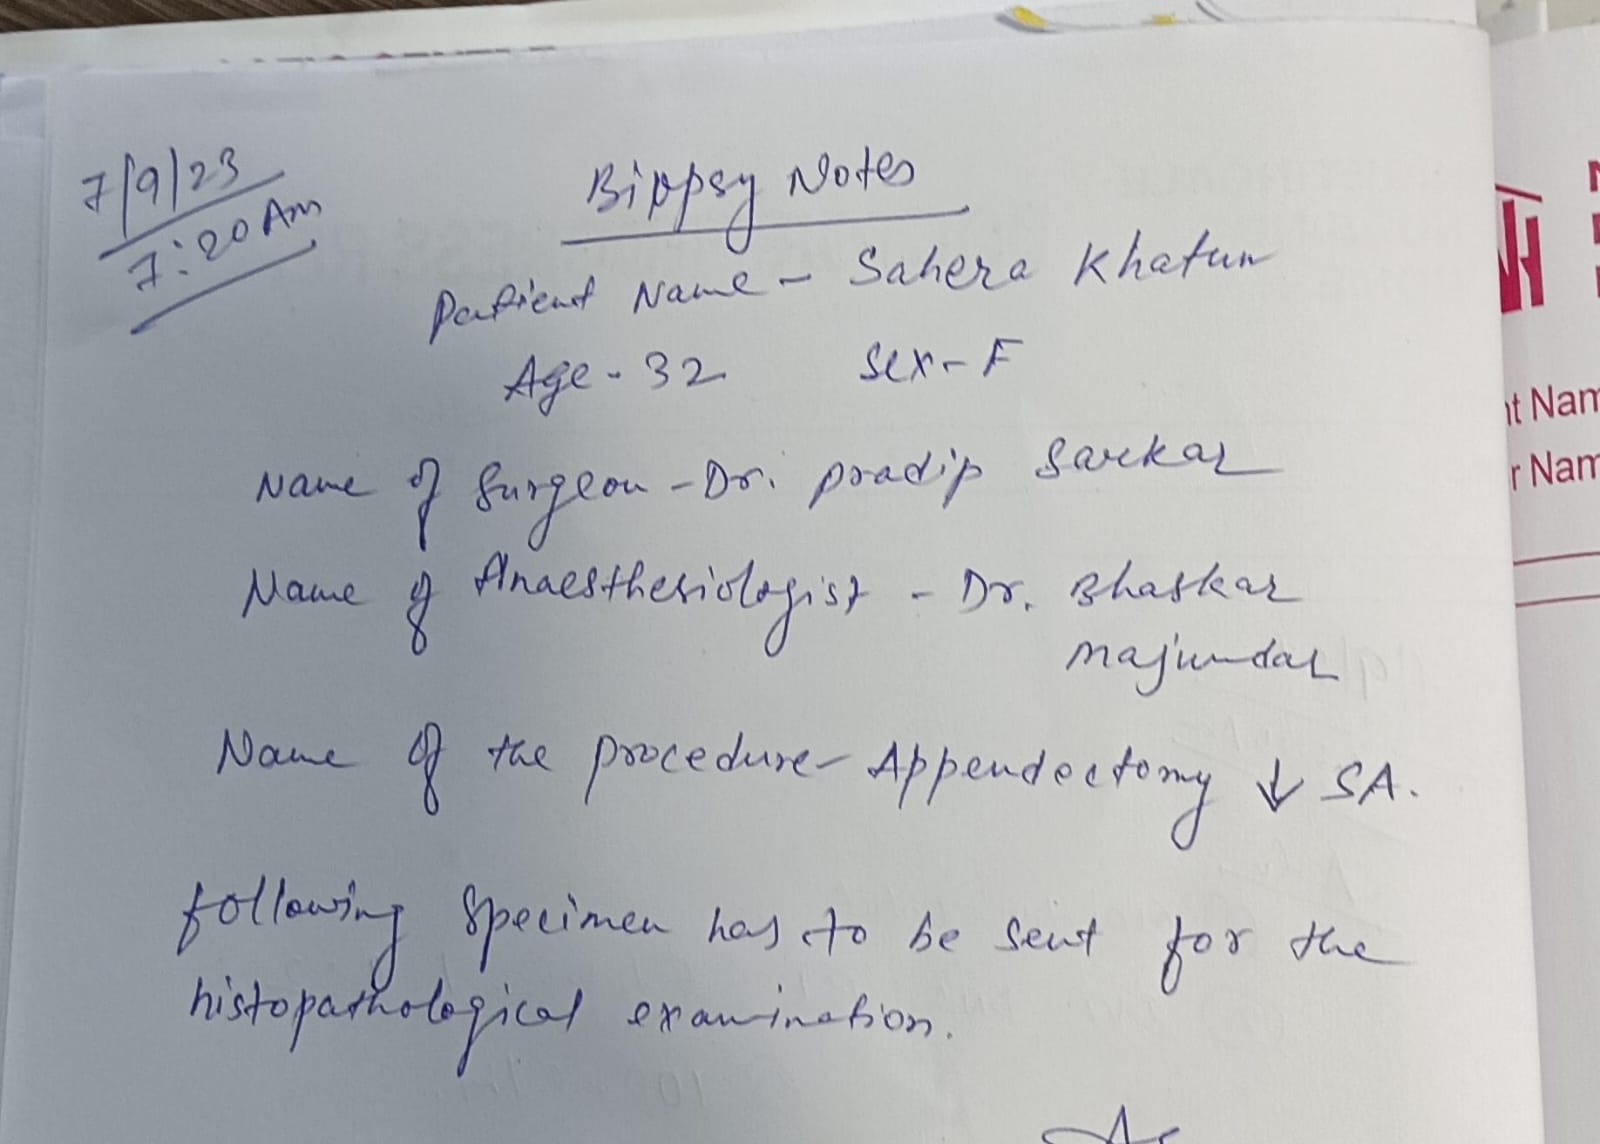 7/9/23
7:20 Am
Biopsy Notes
Patient Name - Sahera Khatun
Age - 32 Sex - F
Name of Surgeon - Dr. pradip Sarkar
Name of Anaesthesiologist - Dr. Bhaskar
Majumdar
Name of the procedure - Appendectomy ↓ SA.
following specimen has to be sent for the
histopathological examination.
NH
nt Nam
r Nam